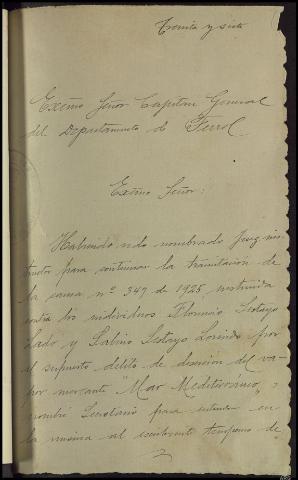 Treinta y siete
Excmo Señor Capitan General
del Departamento de Ferrol.
Excmo Señor:
Habiendo sido nombrado Juez ins-
tructor para continuar la tramitacion de
la causa nº 347 de 1925 instruida
contra los individuos Florencio Sotayo
y Sabino Sotayo por
el supuesto delito de desercion del va-
por mercante "Mar Mediterráneo",
nombré Secretario para entender en
la misma al escribiente temporero de